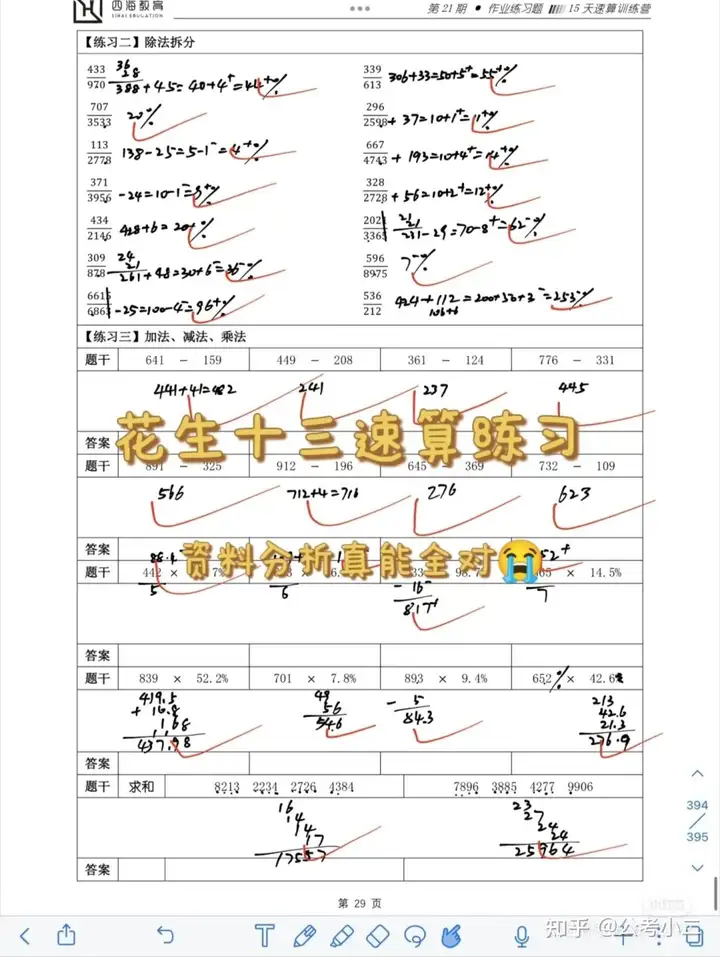 四海教育
SIHAI EDUCATION
第 21 期 • 作业练习题 15 天速算训练营
【练习二】除法拆分
433/970 36 28 388+45=40+4⁺=44⁺% 339/613 306+33=50+5⁺=55⁺%
707/3533 20% 296/2598 +37=10+1⁺=11⁺%
113/2778 138-25=5-1⁻=4⁺% 667/4743 +193=10+4⁺=14⁺%
371/3956 -24=10-1⁻=9⁺% 328/2728 +56=10+2⁺=12⁺%
434/2146 428+6=20⁺% 2021/3365 21 21 231-29=70-8⁺=62⁻%
309/878 24 21 261+48=30+6⁻=36⁻% 596/8975 7⁻%
6615/6863 -25=100-4⁻=96⁺% 536/212 424+112=200+50+3⁻=253⁻%
106+6
【练习三】加法、减法、乘法
题干 641 − 159 449 − 208 361 − 124 776 − 331
441+41=482 241 237 445
花生十三速算练习
答案
题干 891 − 325 912 − 196 645 − 369 732 − 109
566 712+4=716 276 623
资料分析真能全对😭
答案
题干 442 × 98.7% × 14.5%
5 6 7
-16
817⁺
答案
题干 839 × 52.2% 701 × 7.8% 893 × 9.4% 652 × 42.6%
419.5 49 - 5 213
+ 16.8 56 84.3 42.6
1.68 54.6 21.3
437.98 276.9
答案
题干 求和 8213 2234 2726 4384 7896 3885 4277 9906
16 23
14 27
14 24
17 24
17557 25964
答案
第 29 页
394
395
知乎 @公考小二